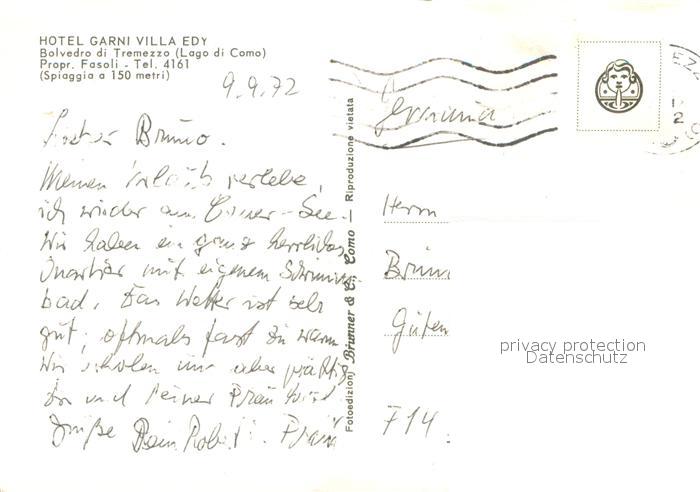 HOTEL GARNI VILLA EDY
Bolvedro di Tremezzo (Lago di Como)
Propr. Fasoli - Tel. 4161
(Spiaggia a 150 metri)
9.9.72
Lieber Bruno.
Meinen Urlaub verlebe
ich wieder am Comer-See.
Wir haben ein ganz herrliches
Quartier mit eigenem Schwimm-
bad. Das Wetter ist sehr
gut, oftmals fast zu warm.
Wir erholen uns aber prächtig
Dir und Deiner Frau
Grüße Dein Robert
Fotoedizioni Brunner & C. Como - Riproduzione vietata
Germania
Herrn
Bruno
privacy protection
Datenschutz
714